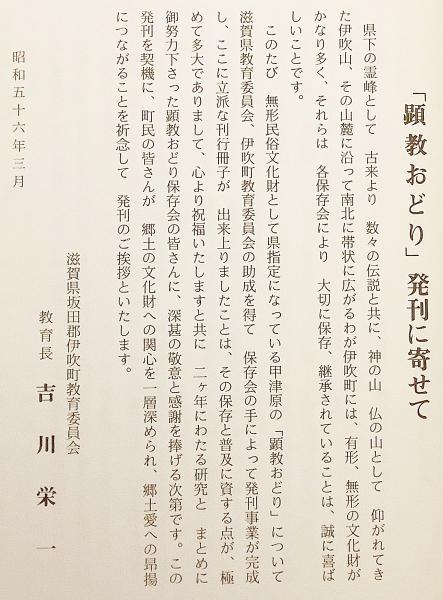 「顕教おどり」発刊に寄せて
県下の霊峰として　古来より　数々の伝説と共に、神の山　仏の山として　仰がれてき
た伊吹山、その山麓に沿って南北に帯状に広がるわが伊吹町には、有形、無形の文化財が
かなり多く、それらは　各保存会により　大切に保存、継承されていることは、誠に喜ば
しいことです。
このたび　無形民俗文化財として県指定になっている甲津原の「顕教おどり」について
滋賀県教育委員会、伊吹町教育委員会の助成を得て　保存会の手によって発刊事業が完成
し、ここに立派な刊行冊子が　出来上りましたことは、その保存と普及に資する点が、極
めて多大でありまして、心より祝福いたしますと共に　二ヶ年にわたる研究と　まとめに
御努力下さった顕教おどり保存会の皆さんに、深甚の敬意と感謝を捧げる次第です。この
発刊を契機に、町民の皆さんが　郷土の文化財への関心を一層深められ、郷土愛への昂揚
につながることを祈念して　発刊のご挨拶といたします。
昭和五十六年三月
滋賀県坂田郡伊吹町教育委員会
教育長　吉川栄一